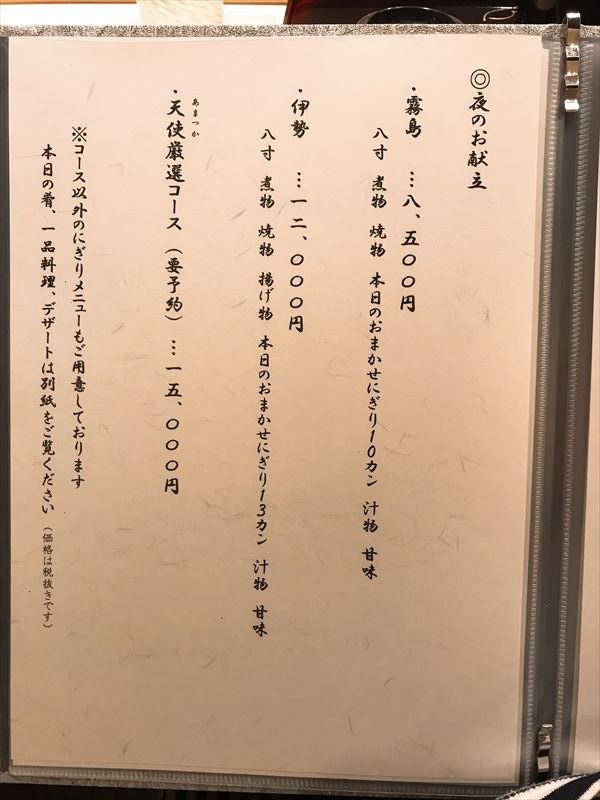 ◎夜のお献立
・霧島 … 八、五〇〇円
八寸 煮物 焼物 本日のおまかせにぎり10カン 汁物 甘味
・伊勢 … 一二、〇〇〇円
八寸 煮物 焼物 揚げ物 本日のおまかせにぎり13カン 汁物 甘味
あまつか
・天使厳選コース（要予約）… 一五、〇〇〇円
※コース以外のにぎりメニューもご用意しております
本日の肴、一品料理、デザートは別紙をご覧ください（価格は税抜きです）